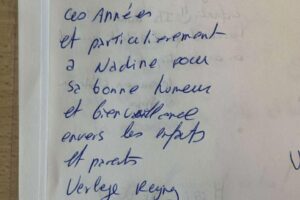 ces Années
et particulièrement
a Nadine pour
sa bonne humeur
et bienveillance
envers les enfants
et parents